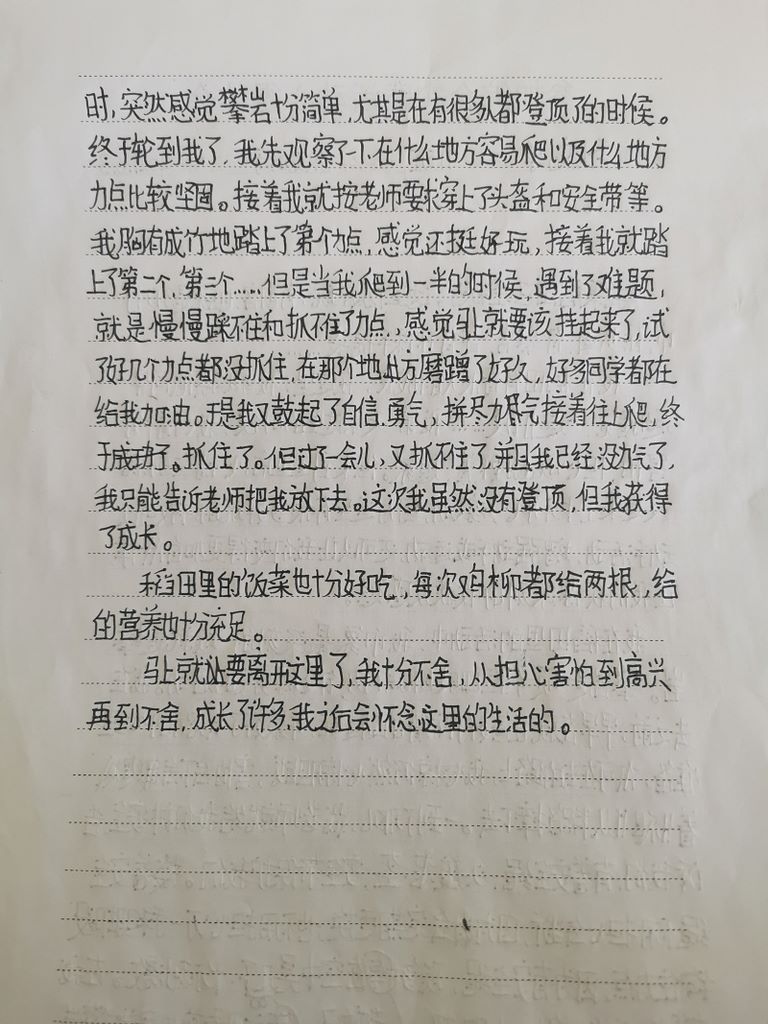 时,突然感觉攀岩十分简单,尤其是在有很多人都登顶了的时候。
终于轮到我了,我先观察了一下在什么地方容易爬以及什么地方
力点比较坚固。接着我就按老师要求穿上了头盔和安全带等。
我胸有成竹地踏上了第一个力点,感觉还挺好玩,接着我就踏
上了第二个,第三个……但是当我爬到一半的时候,遇到了难题,
就是慢慢踩不住和抓不住了力点,感觉马上就要该挂起来了,试
了好几个力点都没抓住,在那个地方磨蹭了好久,好多同学都在
给我加油。于是我又鼓起了自信、勇气,拼尽力气接着往上爬,终
于成功了。抓住了。但过了一会儿,又抓不住了,并且我已经没力气了,
我只能告诉老师把我放下去。这次我虽然没有登顶,但我获得
了成长。
稻田里的饭菜也十分好吃,每次鸡柳都给两根,给
的营养也十分充足。
马上就要离开这里了,我十分不舍,从担心害怕到高兴
再到不舍,成长了许多,我之后会怀念这里的生活的。